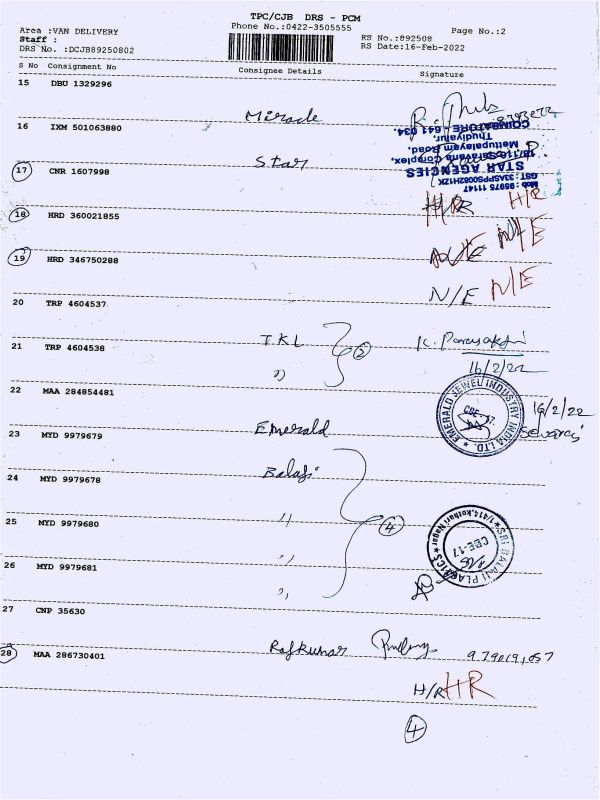 TPC/CJB DRS - PCM
Phone No.:0422-3505555
Page No.:2
Area :VAN DELIVERY
Staff :
DRS No. :DCJB89250802
RS No.:892508
RS Date:16-Feb-2022
S No Consignment No Consignee Details Signature
15 DBU 1329296
Miracle
16 IXM 501063880
Star
STAR AGENCIES
Mettupalayam Road,
Thudiyalur,
COIMBATORE - 641 034.
GST : 33ASPPS0082H1ZK
Mob : 95975 11147
17 CNR 1607998
H/R H/R
18 HRD 360021855
N/E N/E
19 HRD 346750288
N/E N/E
20 TRP 4604537
TKL 2
21 TRP 4604538
16/2/22
22 MAA 284854481
Emerald
EMERALD JEWEL INDUSTRY INDIA LTD.
CBE-17.
16/2/22
23 MYD 9979679
Balaji
24 MYD 9979678
" 4
25 MYD 9979680
"
SRI BALAJI PLASTICS
1/414, Kothari Nagar
CBE-17
26 MYD 9979681
"
27 CNP 35630
Rajkumar
28 MAA 286730401
H/R HR
4